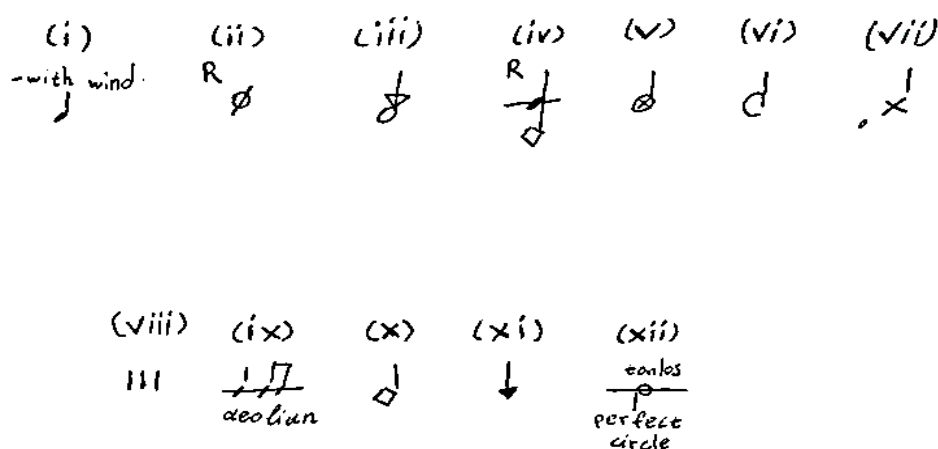 (i) (ii) (iii) (iv) (v) (vi) (vii)
-with wind. R R
(viii) (ix) (x) (xi) (xii)
tonlos
aeolian perfect
circle